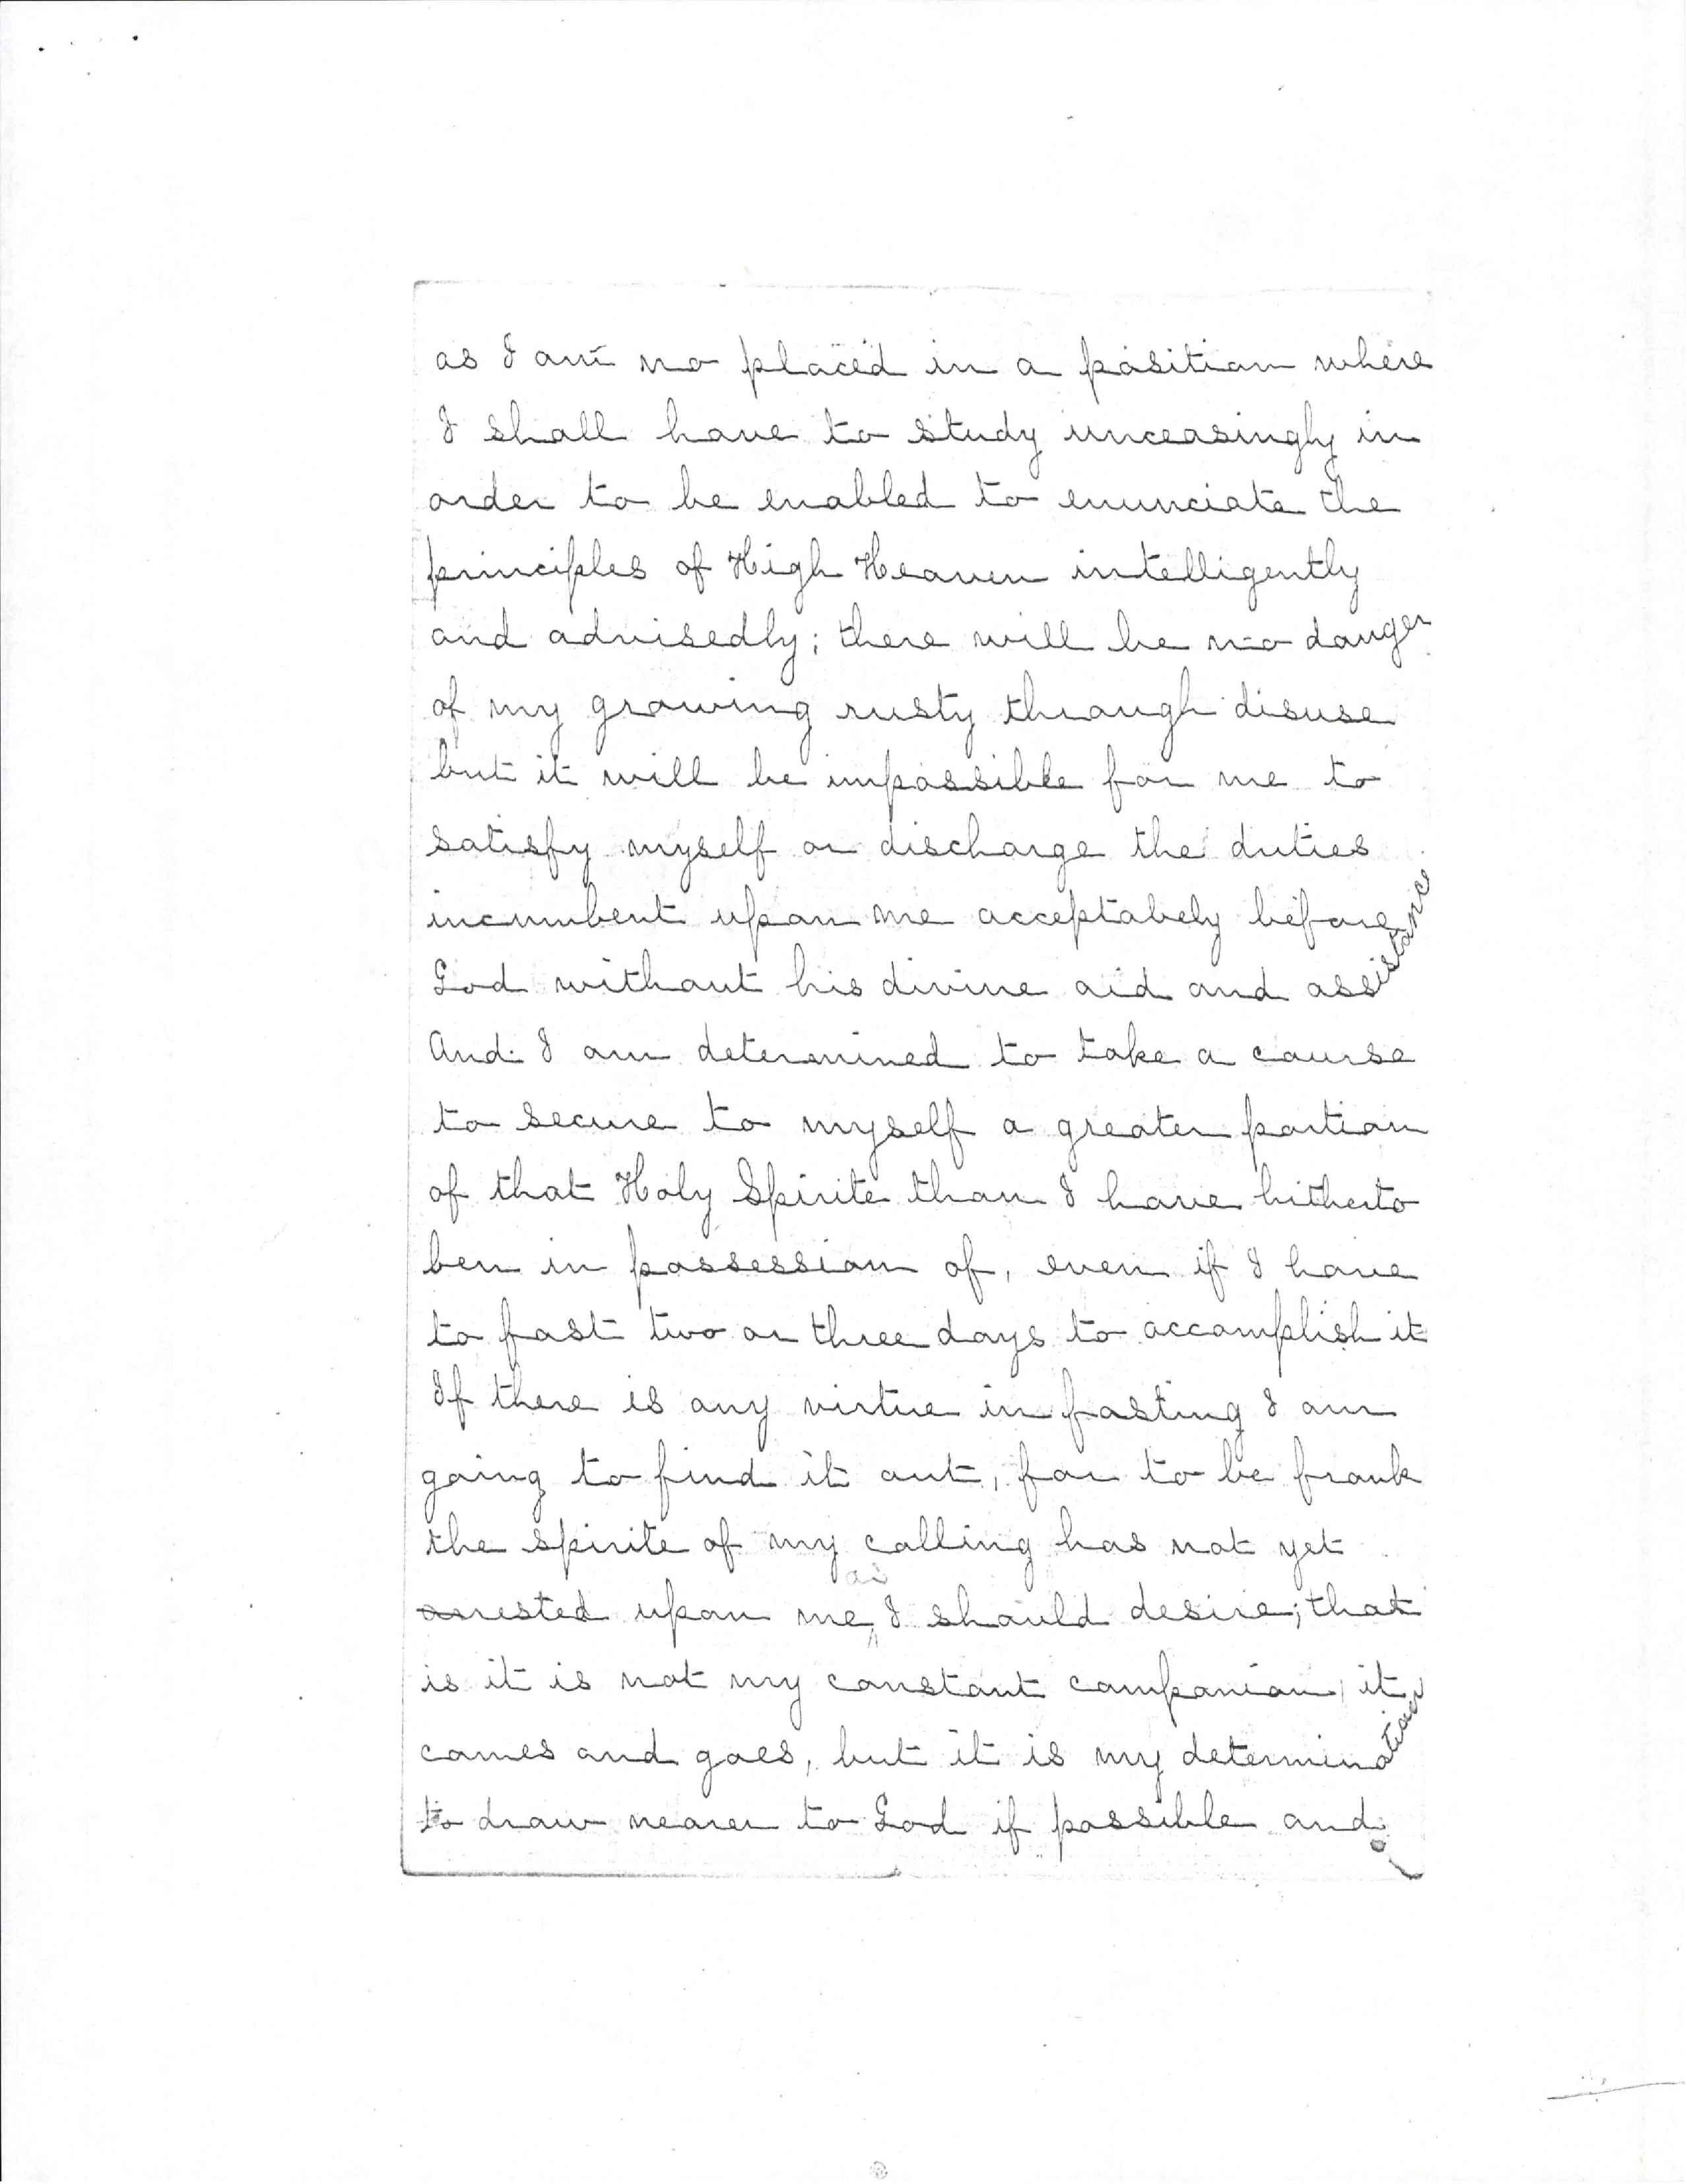 as I am no placed in a position where
I shall have to study unceasingly in
order to be enabled to enunciate the
principles of High Heaven intelligently
and advisedly; there will be no danger
of my growing rusty through disuse
but it will be impossible for me to
satisfy myself or discharge the duties
incumbent upon me acceptabely before
God without his divine aid and assistance
And I am determined to take a course
to secure to myself a greater portion
of that Holy Spirite than I have hitherto
ben in possession of, even if I have
to fast two or three days to accomplish it
If there is any virtue in fasting I am
going to find it out, for to be frank
the spirite of my calling has not yet
arrested upon me, as I should desire; that
is it is not my constant companion, it
comes and goes, but it is my determination
to draw nearer to God if possible and